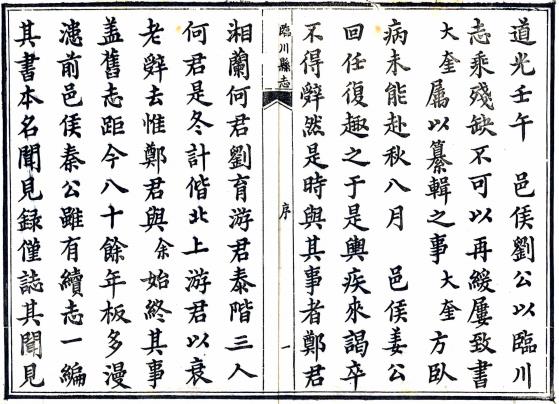 道光壬午　邑侯劉公以臨川
志乘殘缺不可以再緩屢致書
大奎屬以纂輯之事大奎方臥
病未能赴秋八月　邑侯姜公
回任復趣之于是輿疾來謁卒
不得辭然是時與其事者鄭君
臨川縣志
序
一
湘蘭何君劉育游君泰階三人
何君是冬計偕北上游君以衰
老辭去惟鄭君與余始終其事
盖舊志距今八十餘年板多漫
漶前邑侯秦公雖有續志一編
其書本名聞見録僅誌其聞見